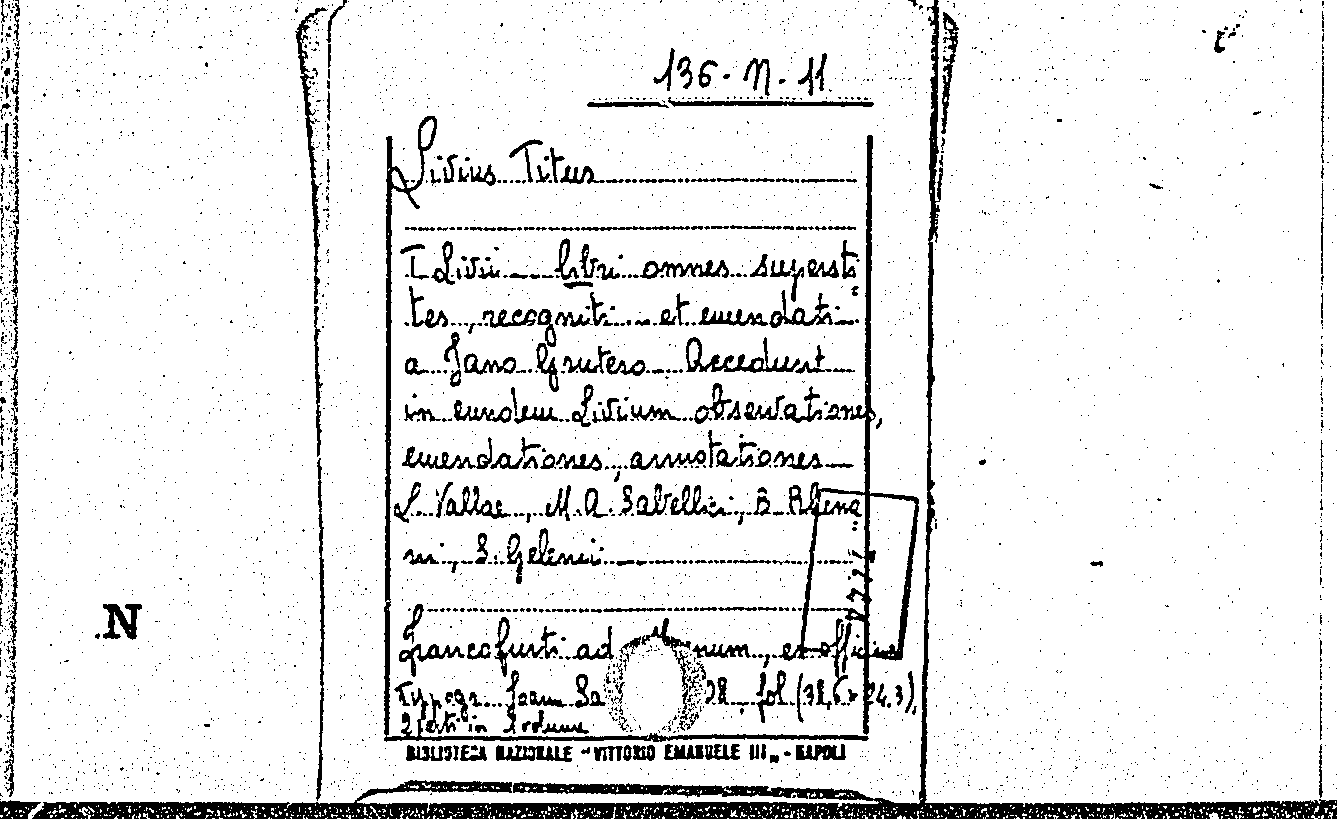 136. N. 11
Livius Titus
T Livii libri omnes supersti
tes, recogniti et emendati
a Jano Grutero Accedunt
in eundem Livium observationes,
emendationes, annotationes
L. Vallae, M. A. Sabellici, B. Rhena
ni, S. Gelenii
Francofurti ad M num, ex officina
Typogr. Joan. Sa 08 fol (38,6 x 24.3).
2 parti in 1 volume
BIBLIOTECA NAZIONALE "VITTORIO EMANUELE III„ - NAPOLI
N